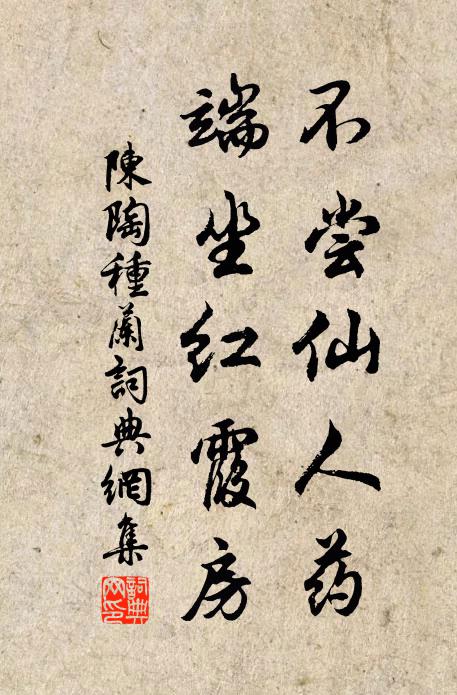 不尝仙人药
端坐红霞房
陳陶種蘭詞典網集
詞典網印